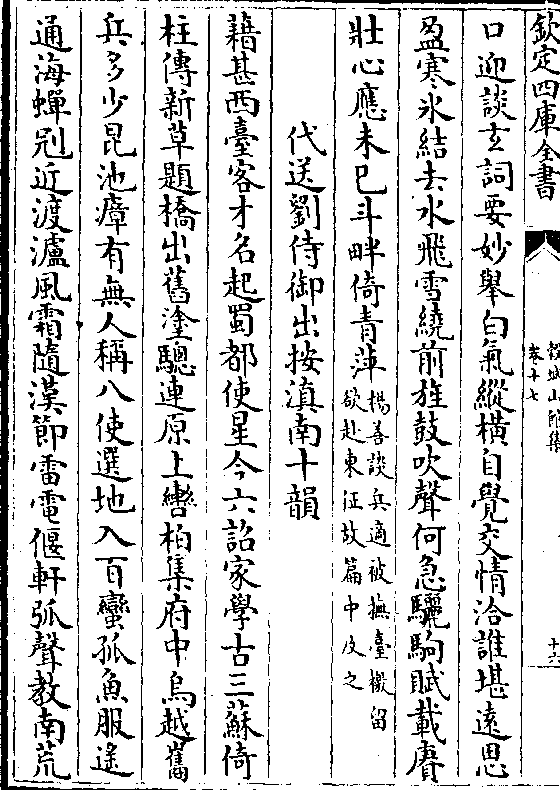 欽定四庫全書
卷十七
十六
口迎談玄詞要妙舉白氣縱橫自覺交情洽誰堪遠思
盈寒氷結去水飛雪繞前旌鼓吹聲何急驪駒賦載賡
壯心應未已斗畔倚青萍楊善談兵適被撫臺檄留
欲赴東征故篇中及之
代送劉侍御出按滇南十韻
藉甚西臺客才名起蜀都使星今六詔家學古三蘇倚
柱傳新草題橋出舊塗驄連原上轡柏集府中烏越巂
兵多少昆池瘴有無人稱八使選地入百蠻孤魚服遥
通海蟬冠近渡瀘風霜隨漢節雷電偃軒弧聲教南荒